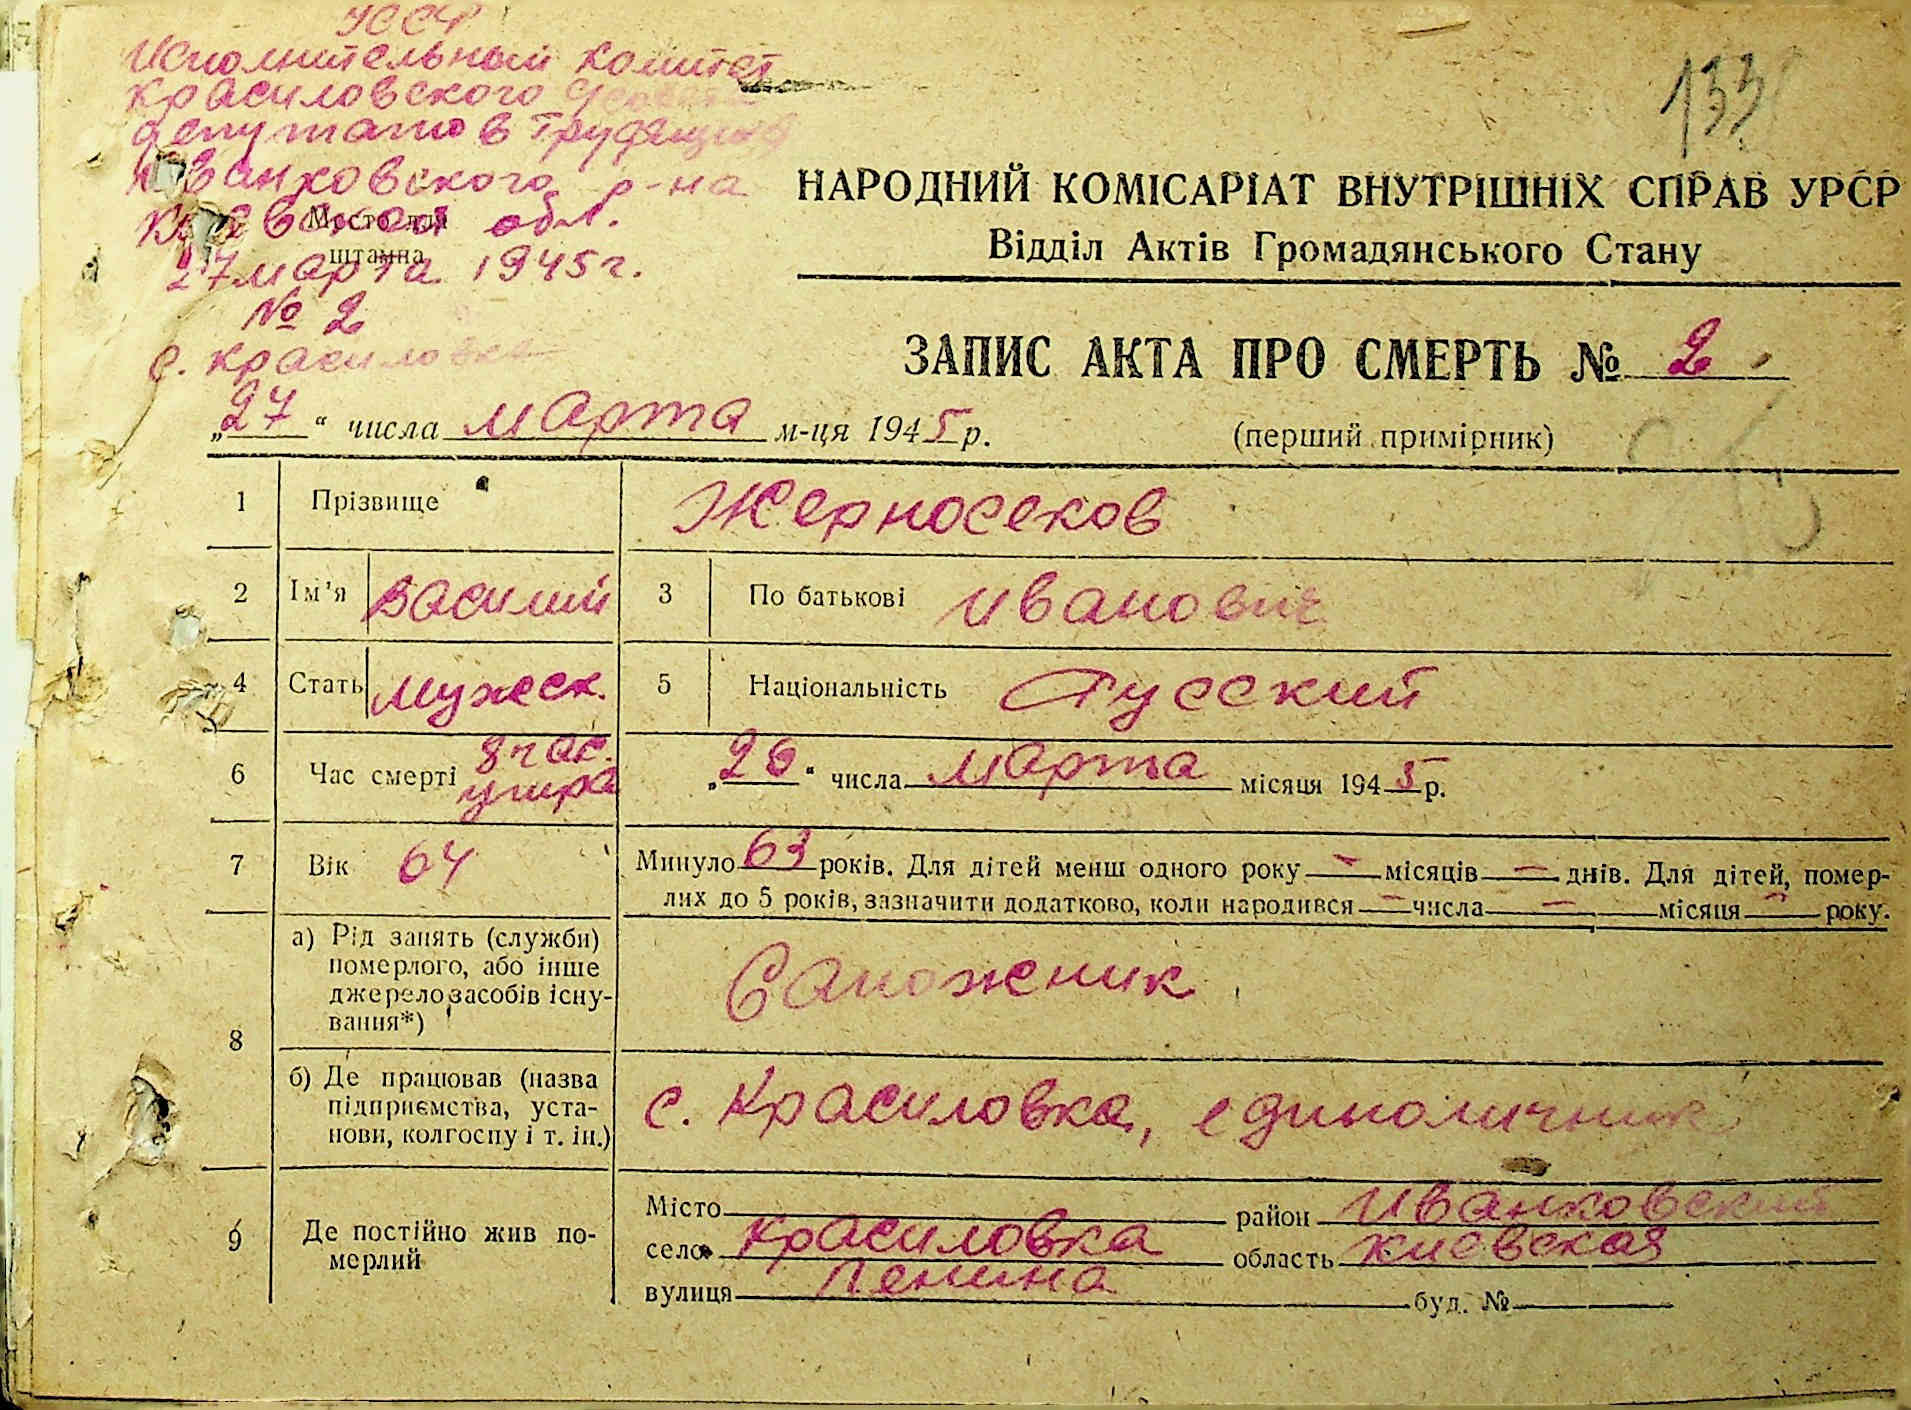 УССР
Исполнительный Комитет
Красиловского
депутатов Трудящихся
Иванковского р-на
Киевской обл.
Место для
штампа
27 марта 1945 г.
№ 2
с. Красиловка
133
НАРОДНИЙ КОМІСАРІАТ ВНУТРІШНІХ СПРАВ УРСР
Відділ Актів Громадянського Стану
ЗАПИС АКТА ПРО СМЕРТЬ № 2
„27“ числа марта м-ця 1945 р.
(перший примірник)
1 Прізвище Жерносеков
2 Ім'я Василий 3 По батькові Иванович
4 Стать мужеск. 5 Національність Русский
6 Час смерті 8 час. утра „26“ числа марта місяця 1945 р.
7 Вік 64 Минуло 63 років. Для дітей менш одного року — місяців — днів. Для дітей, помер-
лих до 5 років, зазначити додатково, коли народився — числа — місяця — року.
8
а) Рід занять (служби)
померлого, або інше
джерело засобів існу-
вання*)
Сапожник
б) Де працював (назва
підприємства, уста-
нови, колгоспу і т. ін.)
с. Красиловка, единоличник
9 Де постійно жив по-
мерлий
Місто район Иванковский
село Красиловка область Киевская
вулиця Ленина буд. №